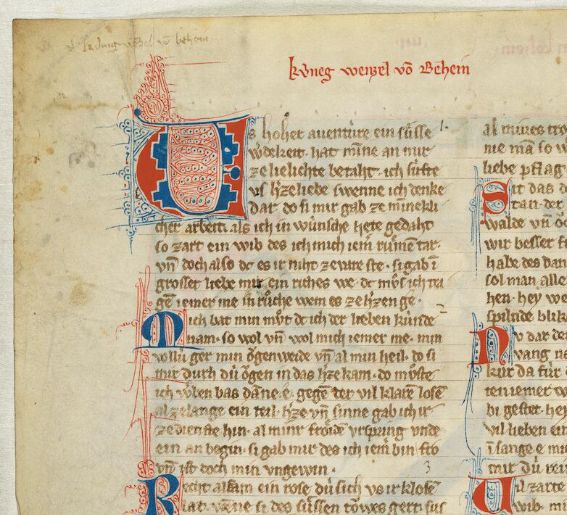 kvneg wenzel vō Behein
Us hoher auentùre ein sùsse
werdekeit · hat minne an mir
ze liehte betaht · ich sùfte
vs h'ze liebe swenne ich denke
dar do si mir gab ze minnekli
cher arbeit · als ich in wunsche hete gedaht
so zart ein wib des ich mich iem' rumē tar ·
vn̄ doch also dc es ir niht ze vare ste · si gab ī
grosser liebe mir ein riches we dc mvs ich tra
gē iemer me in rùche wem es ze h'zen ge ·
Mich bat min mvt dc ich der lieben kùnde
nam · so wol vn̄ wol mich iemer me · min
vollù ger min ŏgenweide vn̄ al min heil · do si
mir durh dù ŏgen in das h'ze kam · do mv̊ste
ich w'ben bas danne e · gegē der vil klarē losē
al ze lange ein teil · h'ze vn̄ sinne gab ich ir
ze dienste hin · al minr frŏide vrspring vnde
ein an begin · si gab mir des ich iem' bin fro
vn̄ ist doch min vngewin · 3
Reht alsam ein rose dù sich vs ir klosē
lat · wēne si des sùssen tŏwes gert sus
al mines tro
nie mā so w
liebe pflag
Sit das d
stan der
walde vn̄
wir besser f
habe des dan
sol man alle
hen · hey we
spilnde blik
Nv dar de
vang na
kùr da fùr
ten iemer w
bi gestet · hey
vil lieben ein
ī sange e mi
mir dù rein
vil zarte
wib · mi